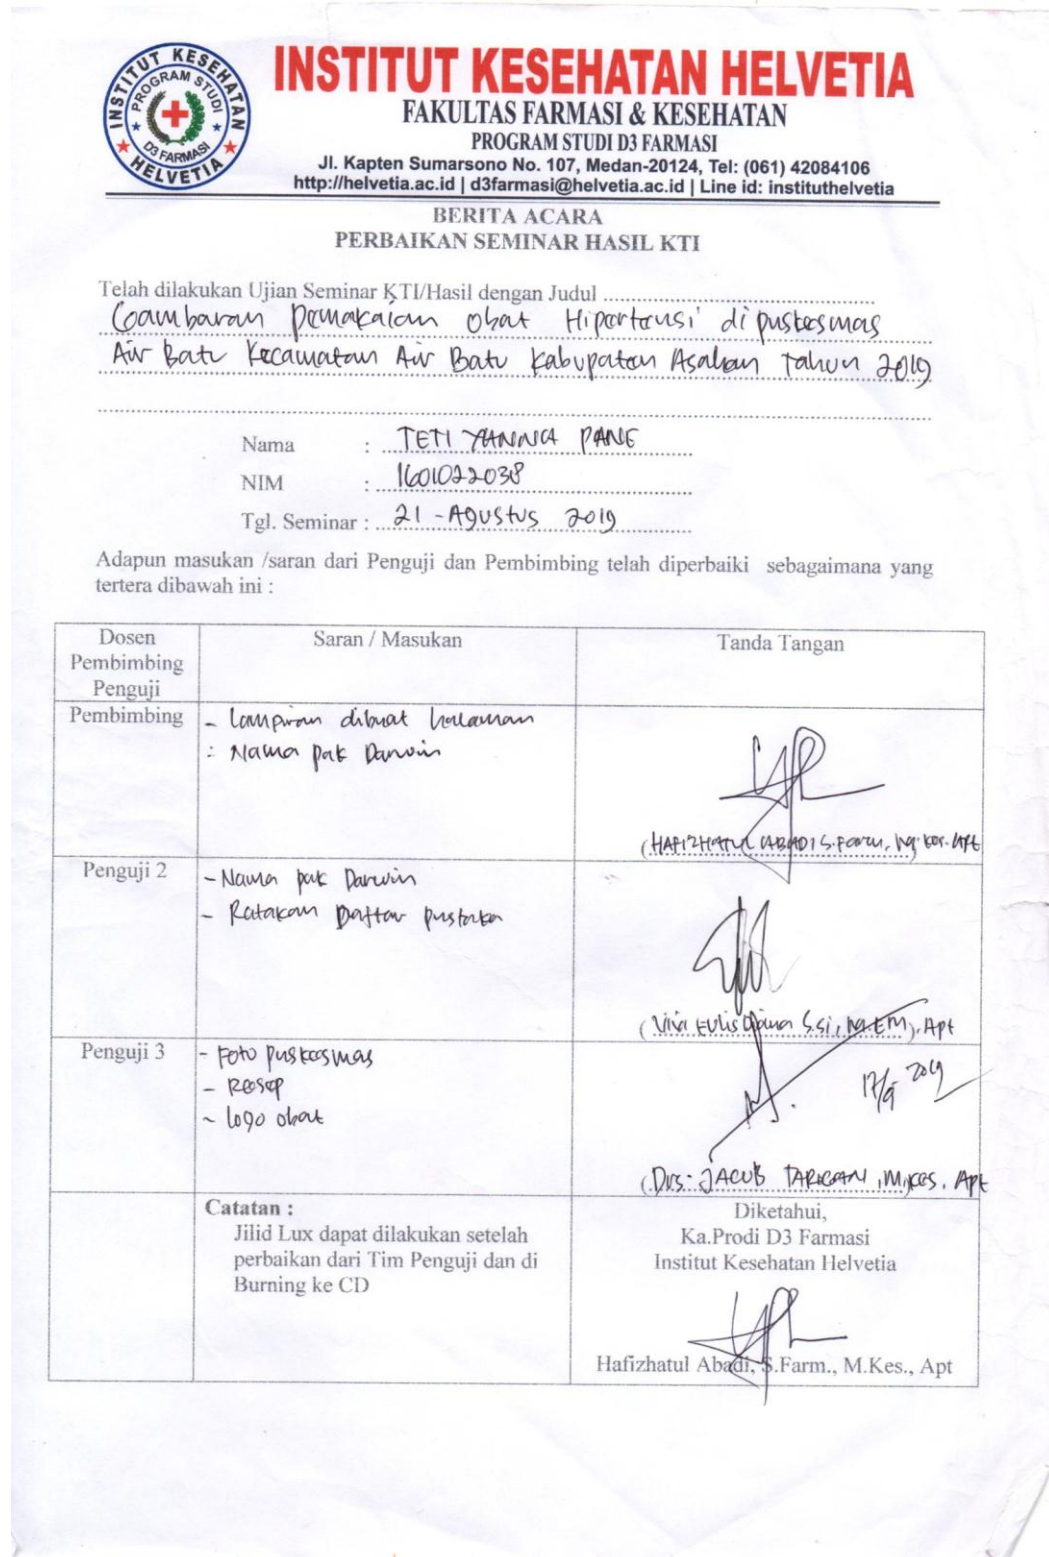 INSTITUT KESEHATAN
PROGRAM STUDI
D3 FARMASI
HELVETIA
INSTITUT KESEHATAN HELVETIA
FAKULTAS FARMASI & KESEHATAN
PROGRAM STUDI D3 FARMASI
Jl. Kapten Sumarsono No. 107, Medan-20124, Tel: (061) 42084106
http://helvetia.ac.id | d3farmasi@helvetia.ac.id | Line id: instituthelvetia
BERITA ACARA
PERBAIKAN SEMINAR HASIL KTI
Telah dilakukan Ujian Seminar KTI/Hasil dengan Judul
Gambaran Pemakaian Obat Hipertensi di puskesmas
Air Batu Kecamatan Air Batu Kabupaten Asahan Tahun 2019
Nama : TETI YANNA PANE
NIM : 1601022038
Tgl. Seminar : 21 - Agustus 2019
Adapun masukan /saran dari Penguji dan Pembimbing telah diperbaiki sebagaimana yang
tertera dibawah ini :
Dosen
Pembimbing
Penguji
Saran / Masukan
Tanda Tangan
Pembimbing
- Lampiran dibuat halaman
: Nama pak Darwin
(HAFIZHATUL ABADI S.Farm, M.Kes. Apt
Penguji 2
- Nama pak Darwin
- Ratakan Daftar pustaka
(Vivi Eulis Diana S.Si, M.EM), Apt
Penguji 3
- Foto Puskesmas
- Resep
- logo obat
2019
(Drs. JACUB TARIGAN, M.Kes, Apt
Catatan :
Jilid Lux dapat dilakukan setelah
perbaikan dari Tim Penguji dan di
Burning ke CD
Diketahui,
Ka.Prodi D3 Farmasi
Institut Kesehatan Helvetia
Hafizhatul Abadi, S.Farm., M.Kes., Apt